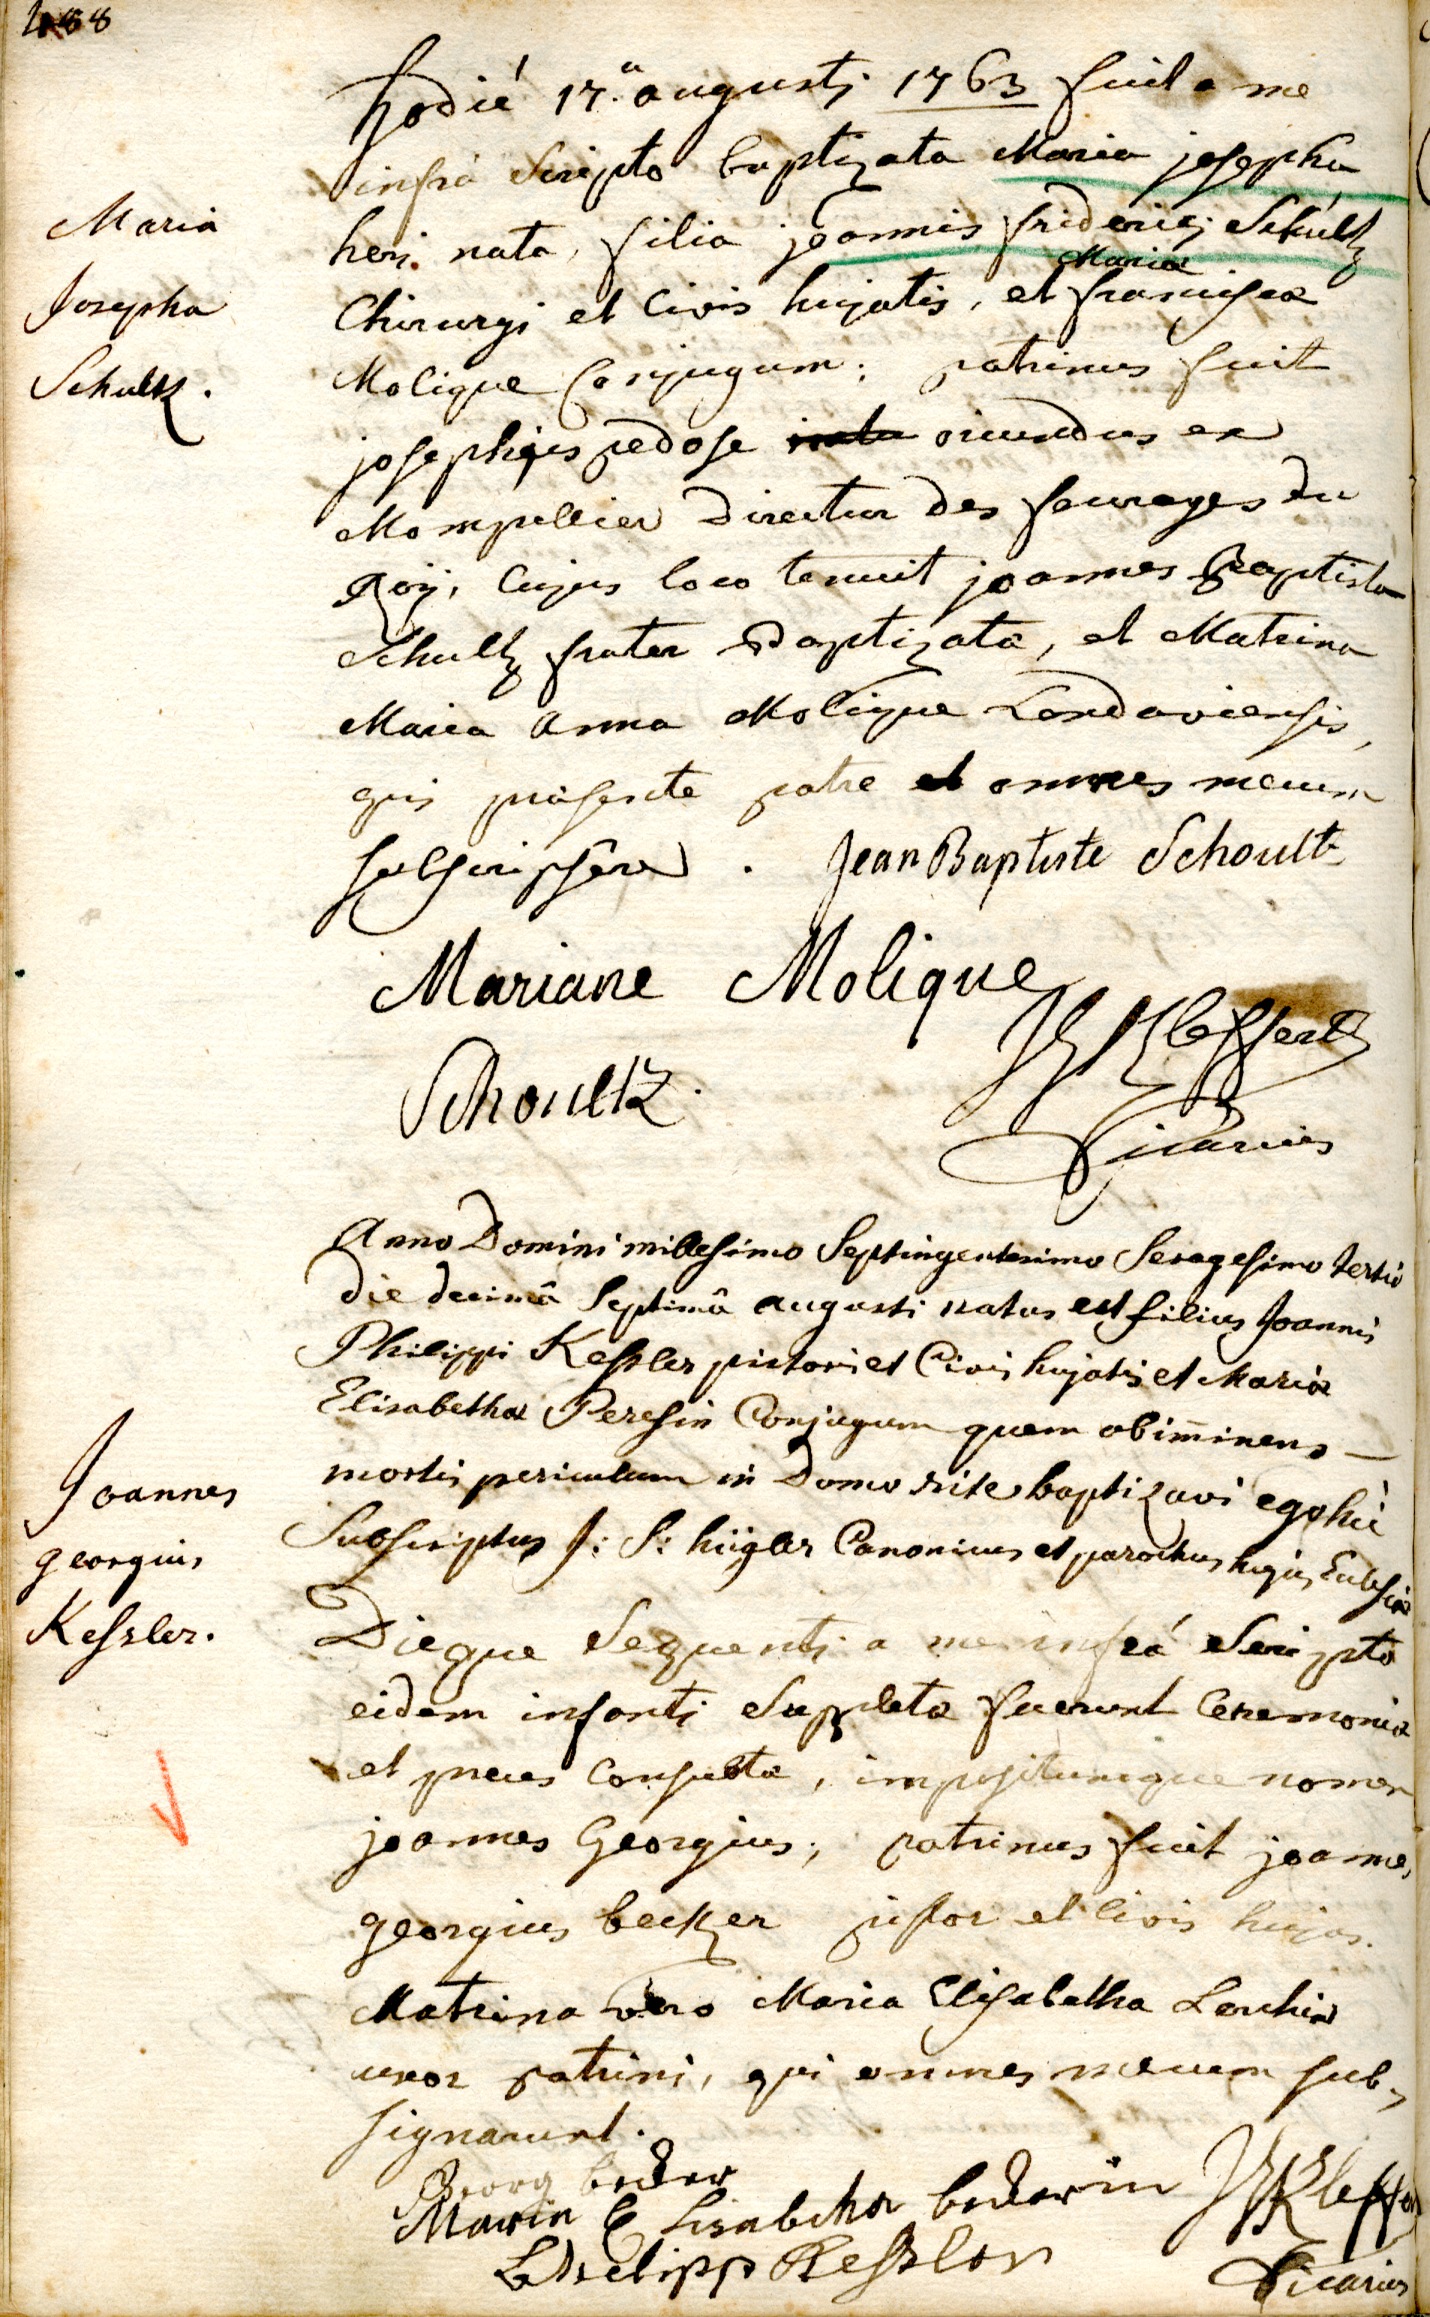 488
Maria
Josepha
Schultz.
hodié 17.a augusti 1763 fuit a me
infrà scripto baptizata Maria josepha
heri nata, filia joannis friderici Schultz
Chirurgi et Civis hujatis, et Maria francisca
Molique Conjugum; patrinus fuit
josephus pedose oriundus ex
Mompellier directeur des fourages du
Roÿ, Cujus loco tenuit joannes Baptista
Schultz frater Baptizatæ, et Matrina
Maria anna Molique Landaviensis,
qui præsente patre et omnes mecum
subscripsêre. Jean Baptiste Schoultz
Mariane Molique
Kleffert
Schoultz.
Vicarius
Joannes
georgius
Kessler.
Anno Domini millesimo Septingentesimo Sexagesimo tertio
die decimâ Septimâ augusti natus est filius Joannis
Philippi Kessler pistoris et Civis hujatis et Mariæ
Elisabethæ Peresin Conjugum quem ob imminens
mortis periculum in Domo rite baptizavi ego hic
Subscriptus J: S: hügler Canonicus et parochus hujus Eclesiæ
Dieque Sequenti a me infrá Scripto
eidem infanti Suppletæ fuerunt Ceremoniæ
et preces Consuetæ, impositumque nomen
joannes Georgius; patrinus fuit joannes
georgius becker pistor et civis hujas.
Matrina vero Maria Elisabetha Lerchin
uxor patrini, qui omnes mecum sub-
signarunt.
Georg becker
Maria Elisabetha beckerin Kleffert
Philipp Kessler Vicarius